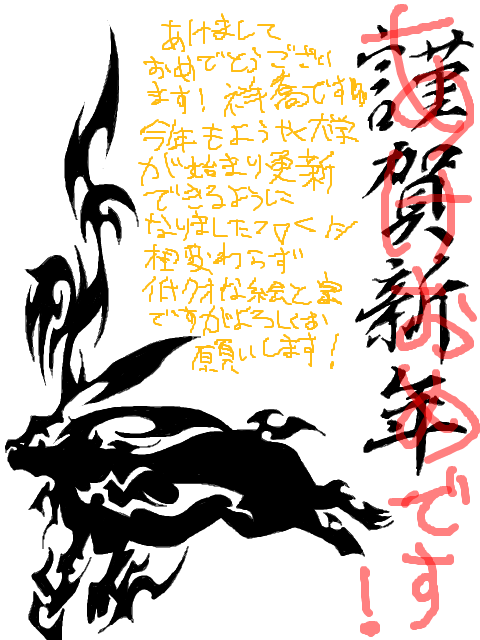 謹賀新年
あけおめです!
あけまして
おめでとうござい
ます! 祥喬です
今年もようやく大学
が始まり更新
できるように
なりました
相変わらず
低クオな絵と字
ですがよろしくお
願いします!